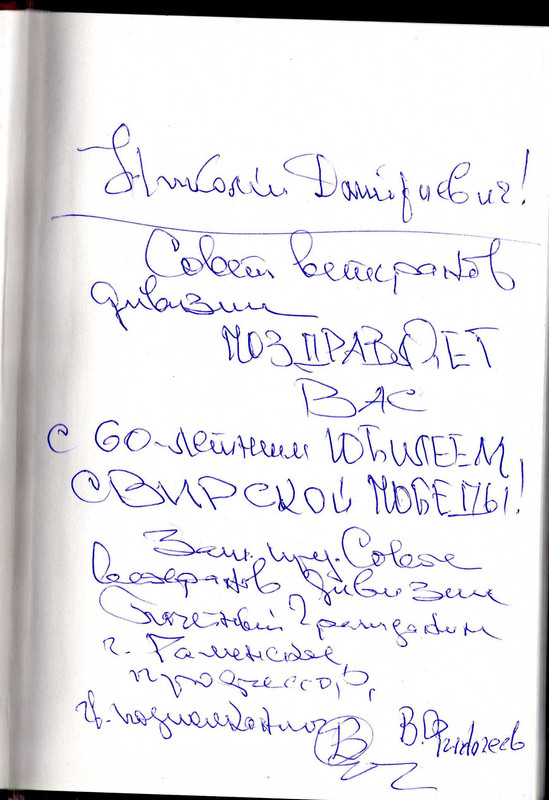 Николай Дмитриевич!
Совет ветеранов
дивизии
ПОЗДРАВЛЯЕТ
ВАС
с 60-летним ЮБИЛЕЕМ
СВИРСКОЙ ПОБЕДЫ!
Зам. пред. Совета
ветеранов дивизии
Почетный Гражданин
г. Раменское,
профессор,
гв. подполковник В.